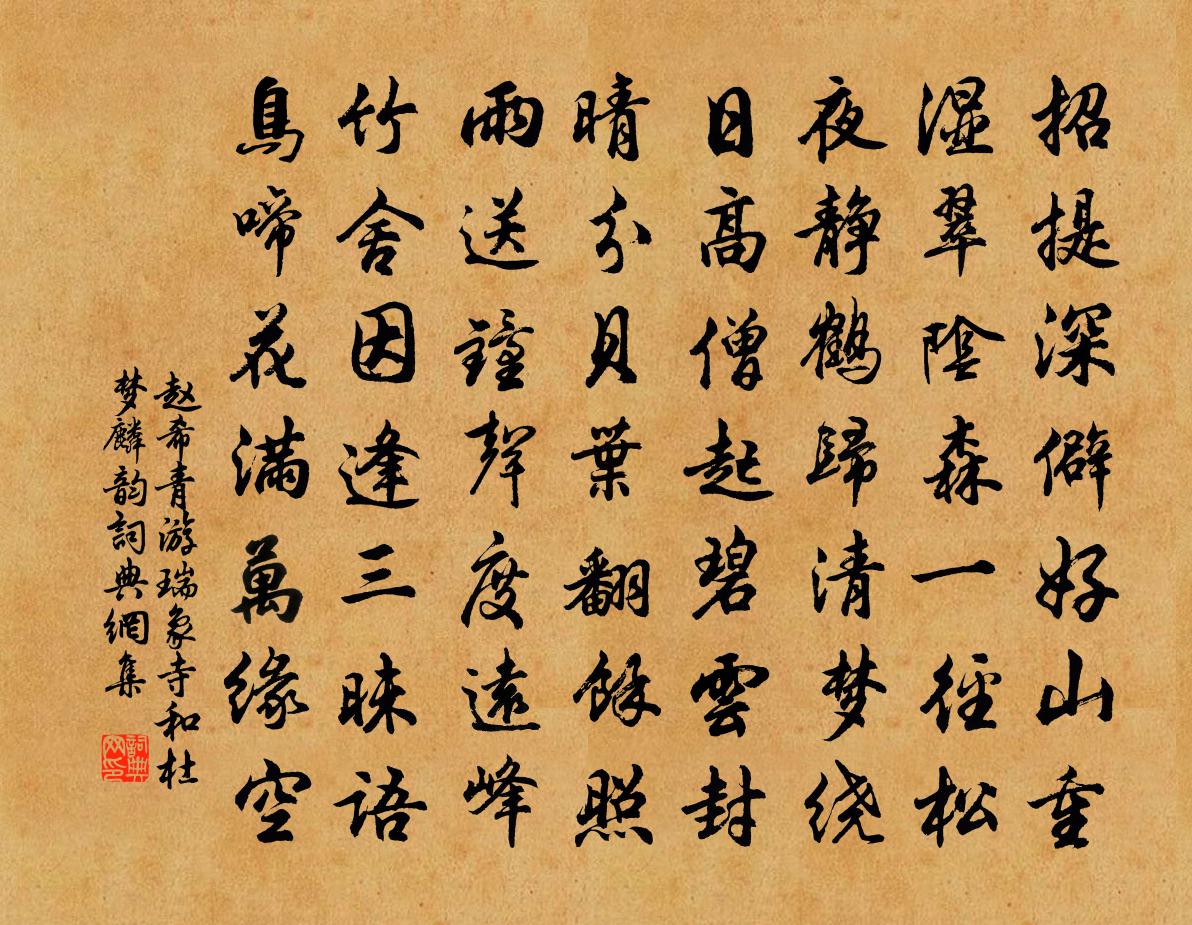 招提深僻好山重
湿翠陰森一徑松
夜静鶴歸清梦绕
日高僧起碧雲封
晴分貝葉翻餘照
雨送鐘聲度遠峰
竹舍因逢三昧語
鳥啼花满萬缘空
赵希青游瑞象寺和杜
梦麟韵詞典網集
詞典
网印